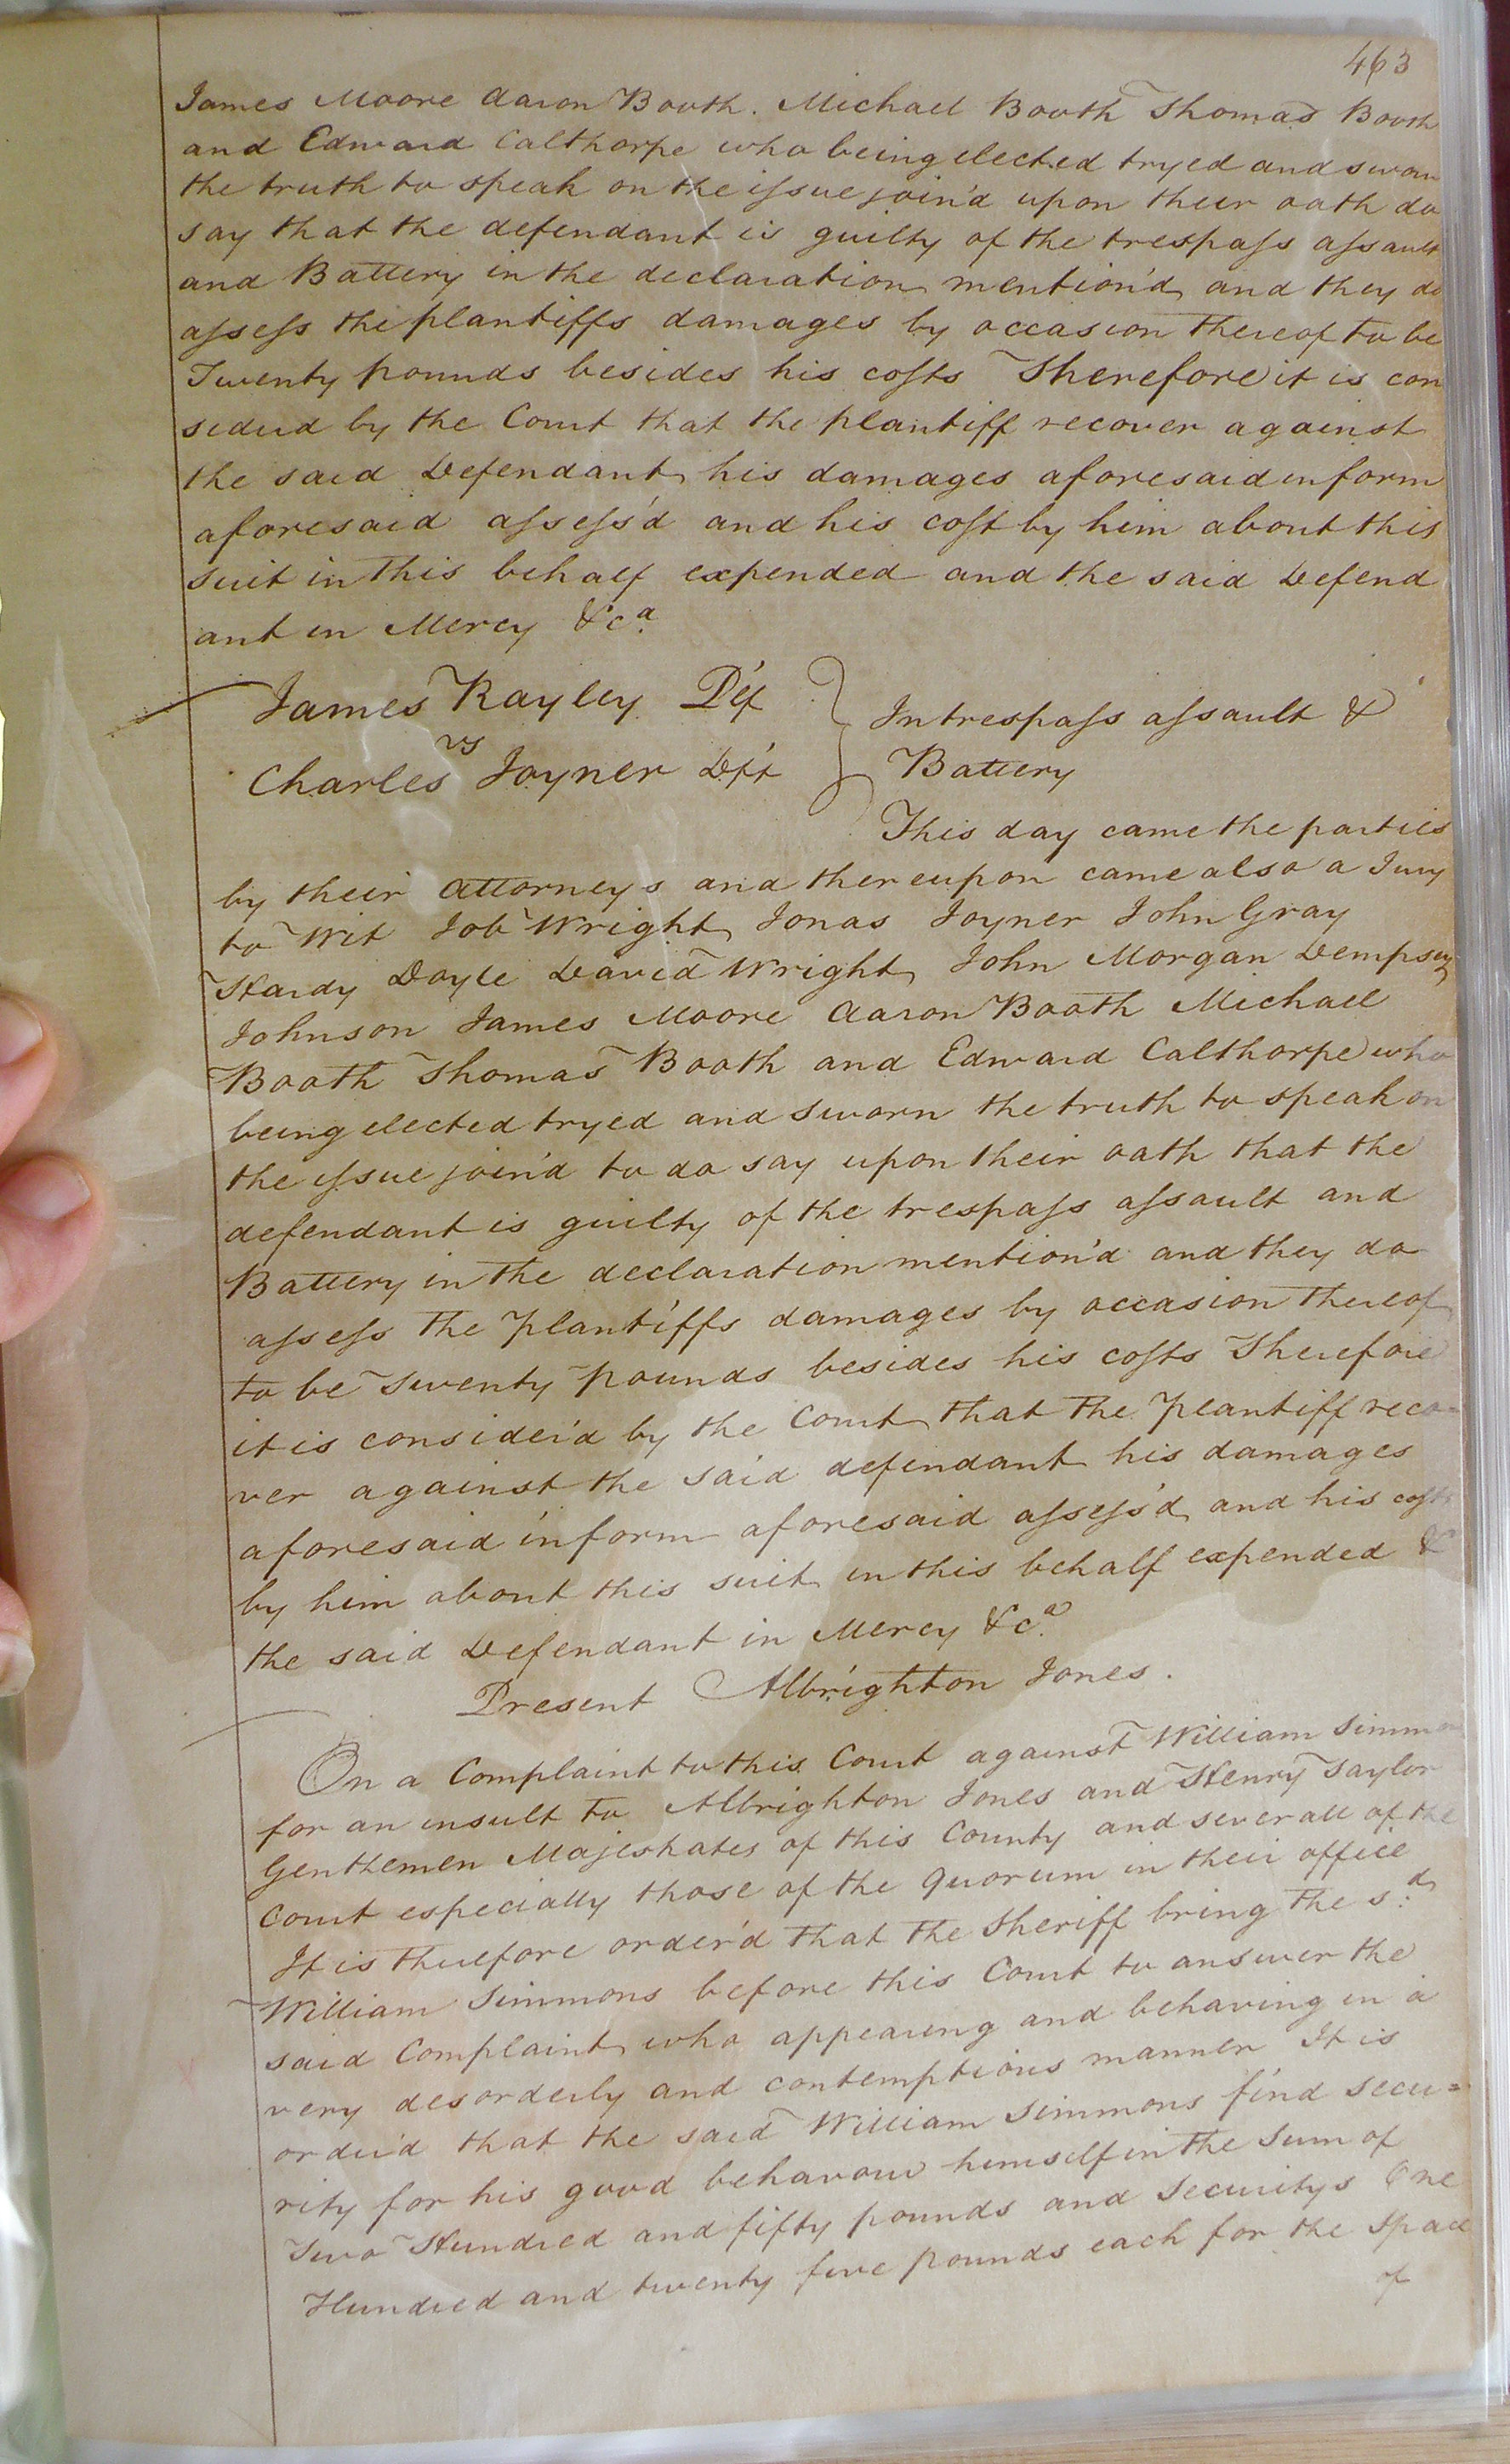 463
James Moore Aaron Booth. Michael Booth Thomas Booth
and Edward Calthorpe who being elected tryed and sworn
the truth to speak on the issue join'd upon their oath do
say that the defendant is guilty of the trespass assault
and Battery in the declaration mention'd and they do
assess the plantiffs damages by occasion thereof to be
Twenty pounds besides his costs Therefore it is con
siderd by the Court that the plantiff recover against
the said Defendant his damages aforesaid in form
aforesaid assess'd and his cost by him about this
suit in this behalf expended and the said Defend
ant in Mercy &ca.
James Rayley Plf
vs
Charles Joyner Dft
In trespass assault &
Battery
This day came the parties
by their Attorneys and thereupon came also a Jury
to Wit Job Wright Jonas Joyner John Gray
Hardy Doyle David Wright John Morgan Dempsey
Johnson James Moore Aaron Booth Michael
Booth Thomas Booth and Edward Calthorpe who
being elected tryed and sworn the truth to speak on
the issue join'd to do say upon their oath that the
defendant is guilty of the trespass assault and
Battery in the declaration mention'd and they do
assess the plantiffs damages by occasion thereof
to be Twenty pounds besides his costs Therefore
it is consider'd by the Court that the plantiff reco=
ver against the said defendant his damages
aforesaid in form aforesaid assess'd and his costs
by him about this suit in this behalf expended &
the said Defendant in Mercy &ca.
Present Albrighton Jones.
On a Complaint to this Court against William Simmons
for an insult to Albrighton Jones and Henry Taylor
Genthemen Majestrates of this County and severall of the
Court especially those of the Quorum in their office
It is therefore order'd that the Sheriff bring the s.d
William Simmons before this Court to answer the
said Complaint who appearing and behaving in a
very desorderly and contemptious manner It is
order'd that the said William Simmons find secu=
rity for his good behavour himself in the Sum of
Two Hundred and fifty pounds and Securitys One
Hundred and twenty five pounds each for the Space
of